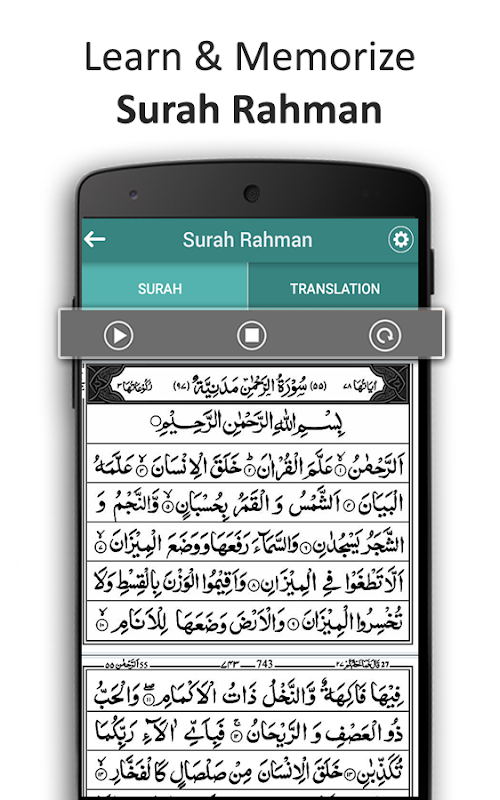 Learn & Memorize
Surah Rahman
Surah Rahman
SURAH
TRANSLATION
اٰيَاتُهَا ٧٨ (٥٥) سُوْرَةُ الرَّحْمٰنِ مَدَنِيَّةٌ (٩٧) رُكُوْعَاتُهَا ٣
بِسْمِ اللهِ الرَّحْمٰنِ الرَّحِيْمِ
اَلرَّحْمٰنُ ۙ‏ ١ عَلَّمَ الْقُرْاٰنَ ؕ‏ ٢ خَلَقَ الْاِنْسَانَ ۙ‏ ٣ عَلَّمَهُ
الْبَيَانَ ٤ اَلشَّمْسُ وَ الْقَمَرُ بِحُسْبَانٍ ۙ‏ ٥ وَّالنَّجْمُ وَ
الشَّجَرُ يَسْجُدٰنِ ٦ وَالسَّمَآءَ رَفَعَهَا وَوَضَعَ الْمِيْزَانَ ۙ‏ ٧
اَلَّا تَطْغَوْا فِي الْمِيْزَانِ ٨ وَاَقِيْمُوا الْوَزْنَ بِالْقِسْطِ وَلَا
تُخْسِرُوا الْمِيْزَانَ ٩ وَالْاَرْضَ وَضَعَهَا لِلْاَنَامِ ۙ‏ ١٠
الرَّحْمٰن ٥٥ 55 ٧٤٣ 743 27 ٢٧
فِيْهَا فَاكِهَةٌ وَّالنَّخْلُ ذَاتُ الْاَكْمَامِ ١١ وَالْحَبُّ
ذُو الْعَصْفِ وَ الرَّيْحَانُ ۚ‏ ١٢ فَبِاَيِّ اٰلَآءِ رَبِّكُمَا
تُكَذِّبٰنِ ١٣ خَلَقَ الْاِنْسَانَ مِنْ صَلْصَالٍ كَالْفَخَّارِ ۙ‏ ١٤